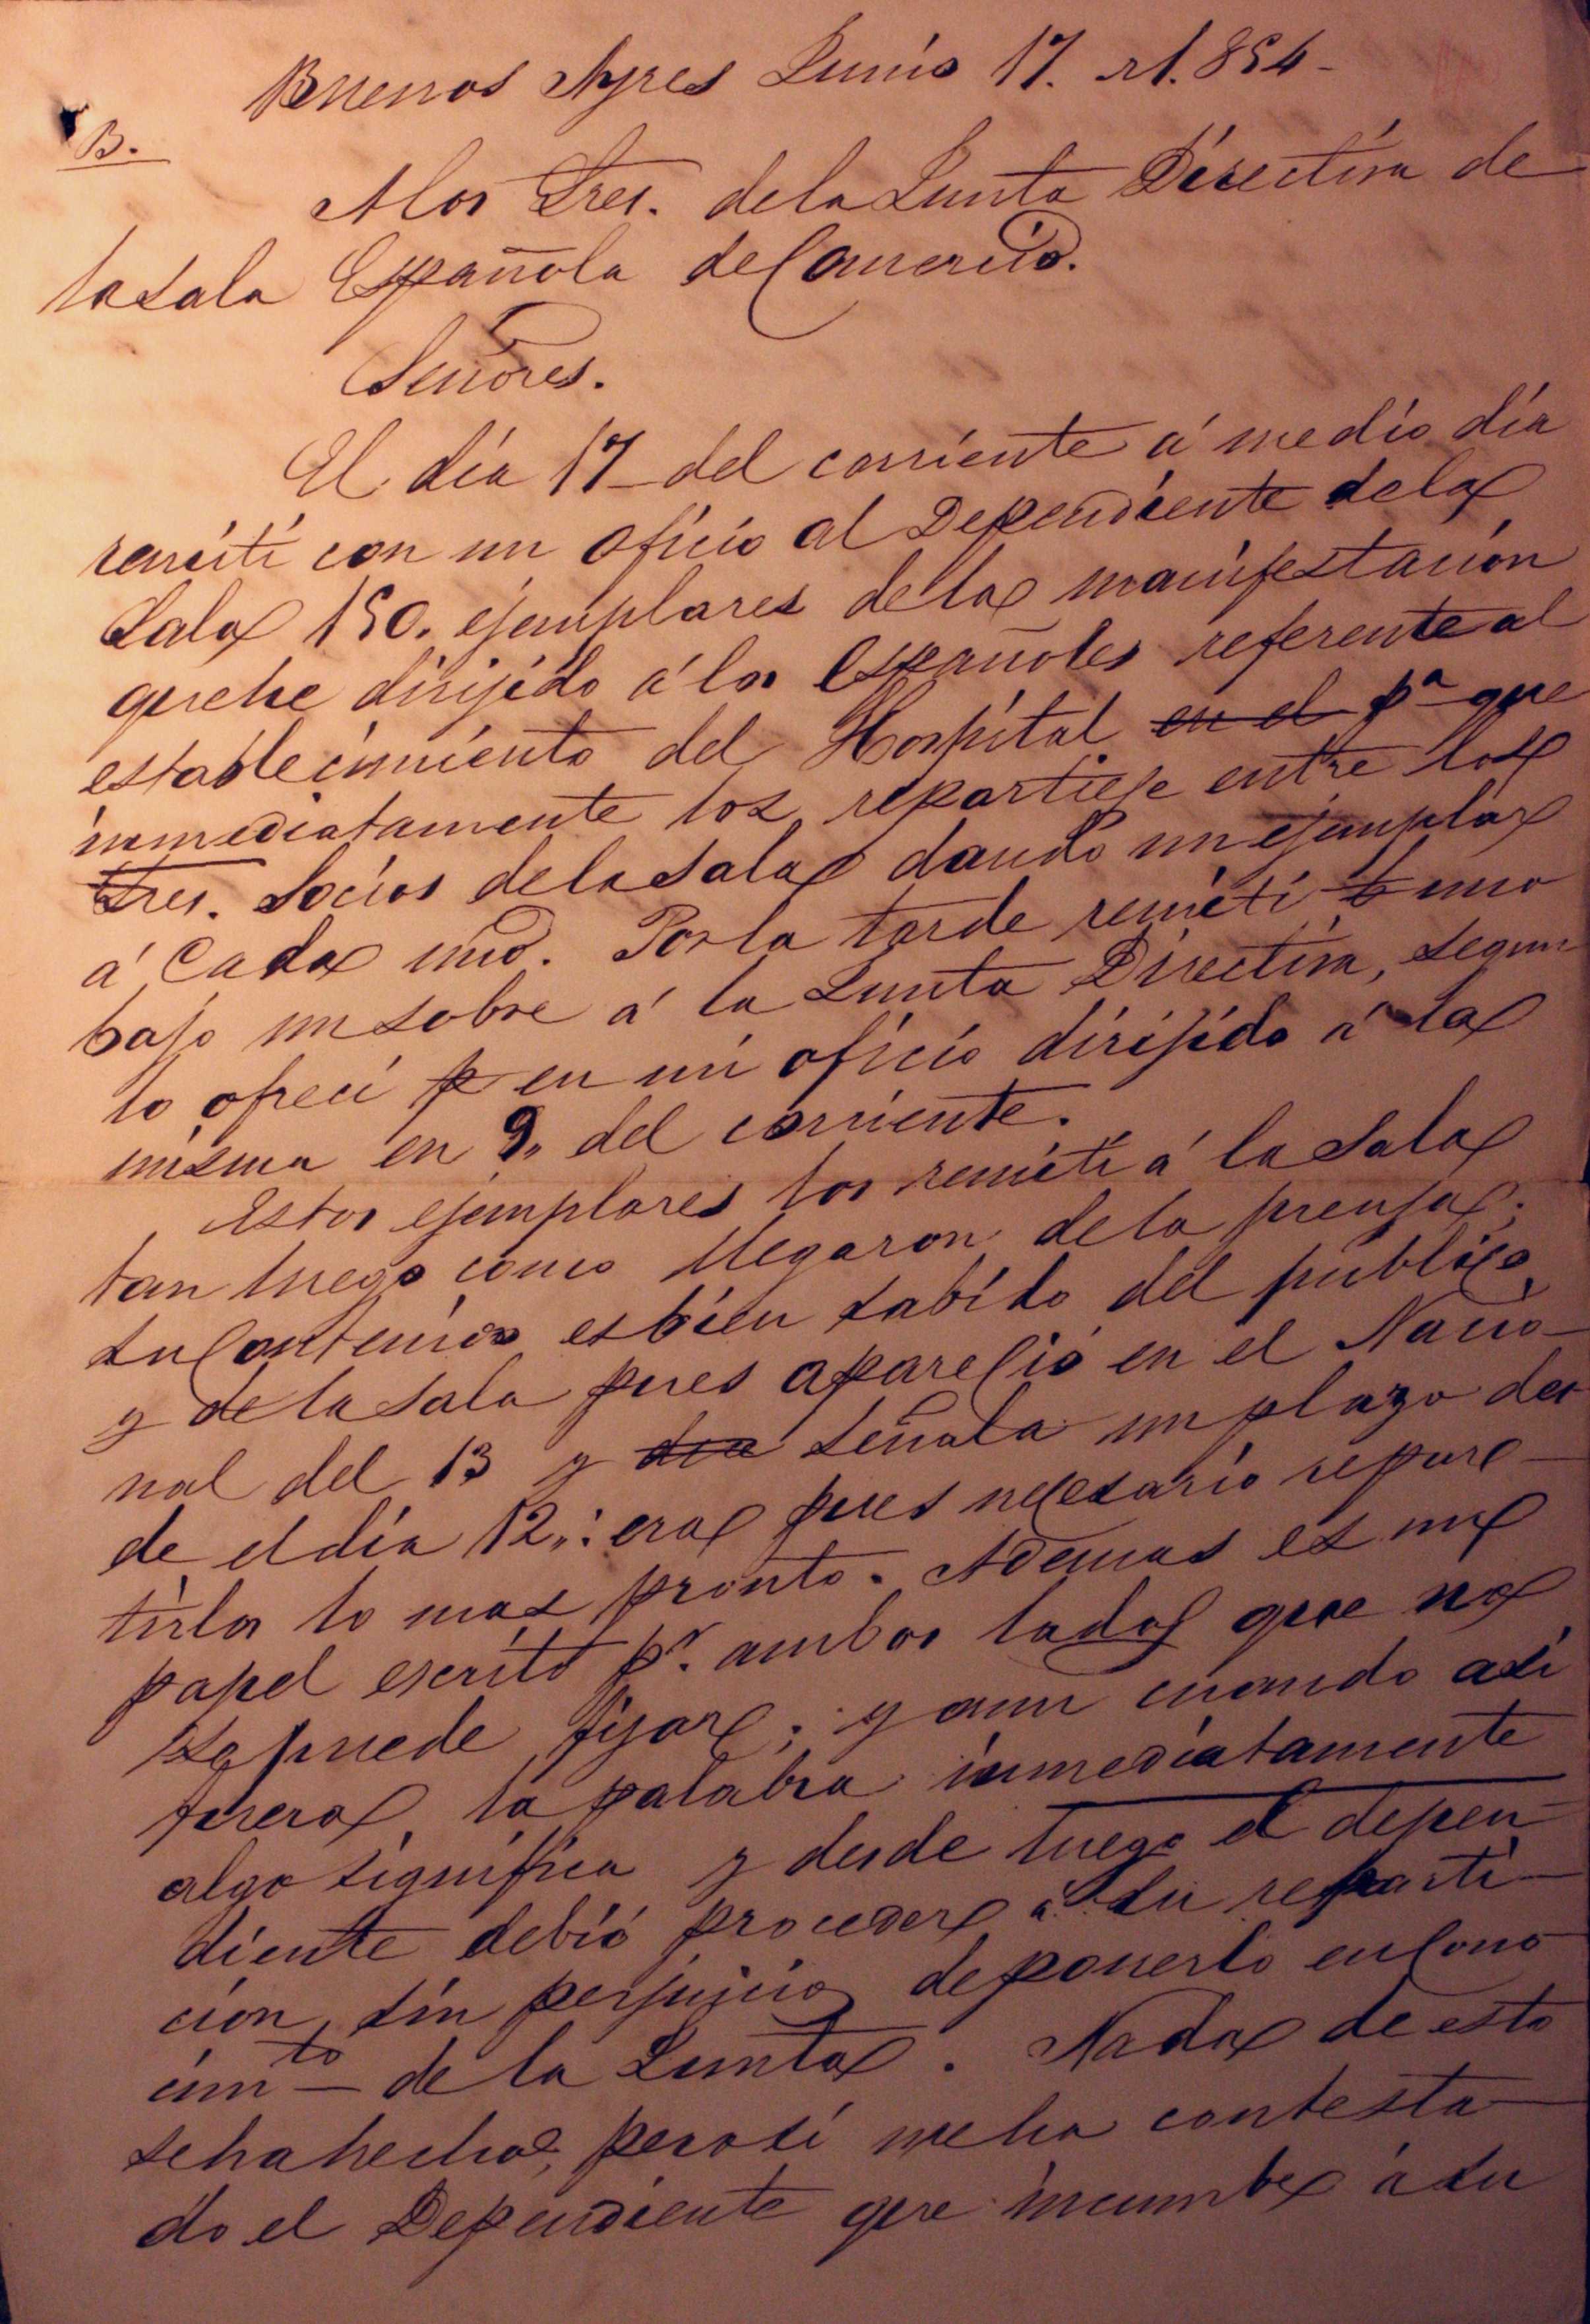 Buenos Ayres Junio 17. de 1.854-
B.
A los Sres. de la Junta Directiva de
la Sala Española de Comercio.
Señores.
El dia 17 del corriente á medio dia
remiti con un oficio al Dependiente de la
Sala 150. ejemplares de la manifestacion
que he dirijido á los Españoles referente al
establecimiento del Hospital en el pa que
inmediatamente los repartiese entre los
Sres. Socios de la Sala dando un ejemplar
á Cada uno. Por la tarde remiti t uno
bajo un sobre á la Junta Directiva, segun
lo ofreci p en mi oficio dirijido á la
misma en 9. del corriente.
Estos ejemplares los remiti á la Sala
tan luego como llegaron de la prensa;
su Contenido es bien sabido del publico
y de la Sala pues aparecio en el Nacio-
nal del 13 y dia señala un plazo des-
de el dia 12.: era pues necesario repar-
tirlos lo mas pronto. Ademas es un
papel escrito pr. ambos lados que no
se puede fijar; y aun cuando asi
fuera, la palabra inmediatamente
algo significa y desde luego el depen-
diente debió proceder á su reparti-
cion, sin perjuicio de ponerlo en Cono-
cimto de la Junta. Nada de esto
se ha hecho, pero si me ha contesta-
do el Dependiente que incumbe á su